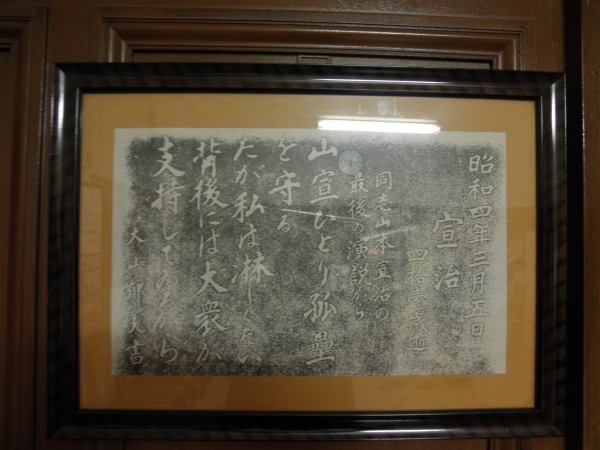 昭和四年三月五日
宣治
四拾壱歳逝
同志山本宣治の
最後の演説から
山宣ひとり孤壘
を守る
だが私は淋しくない
背後には大衆が
支持してゐるから
大山郁夫書